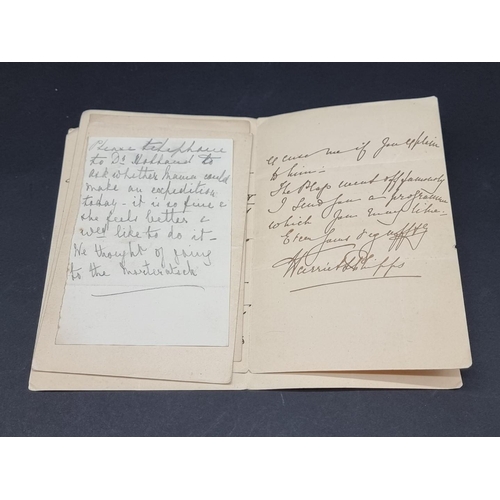 Please telephone
to Dr. Holland to
ask whether Mama could
make an expedition
today - it is so fine &
she feels better &
wd. like to do it -
We thought of going
to the
excuse me if you explain
to him -
The Play went off famously
I send you a programme
which you may like.
Ever yours
Harriet L Phipps